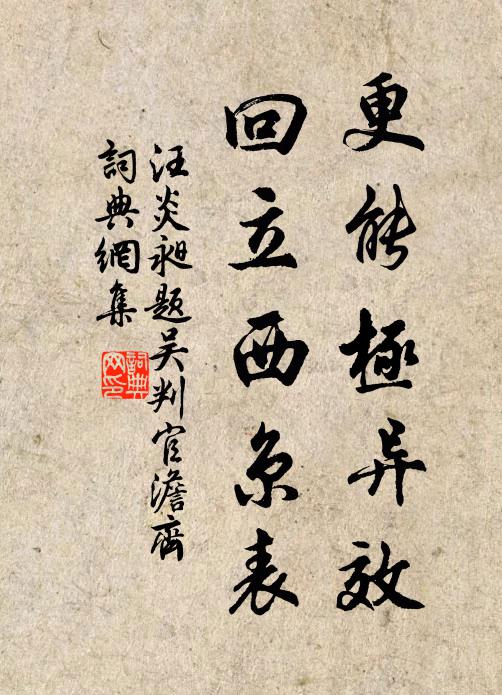 更能極异效
回立西京表
汪炎昶题吴判官澹齋
詞典網集
詞典網印